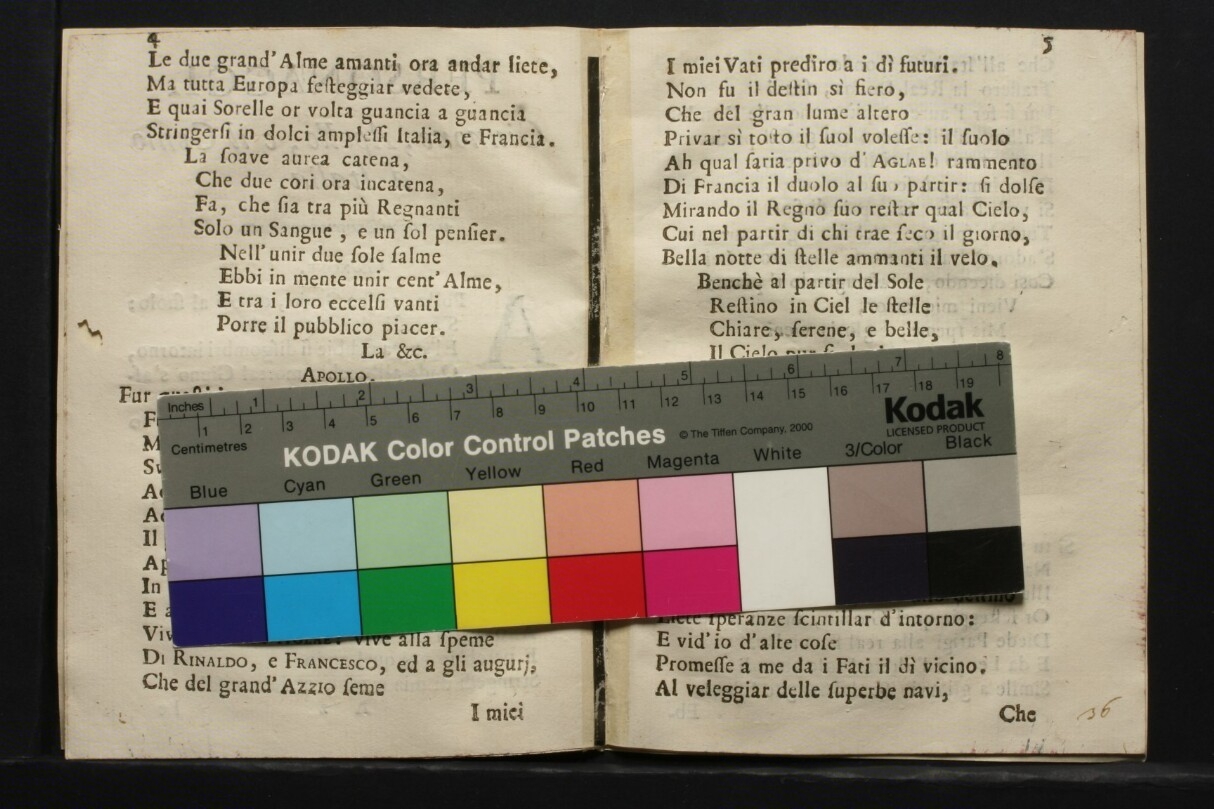 4
Le due grand' Alme amanti ora andar liete,
Ma tutta Europa feſteggiar vedete,
E quai Sorelle or volta guancia a guancia
Stringerſi in dolci ampleſſi Italia, e Francia.
La ſoave aurea catena,
Che due cori ora incatena,
Fa, che ſia tra più Regnanti
Solo un Sangue, e un ſol penſier.
Nell' unir due ſole ſalme
Ebbi in mente unir cent' Alme,
E tra i loro eccelſi vanti
Porre il pubblico piacer.
La &c.
APOLLO.
Fur
Il
In
E
vive alla ſpeme
Di RINALDO, e FRANCESCO, ed a gli augurj,
Che del grand' AZZIO ſeme
I miei
5
I miei Vati prediro a i dì futuri.
Non fu il deſtin sì fiero,
Che del gran lume altero
Privar sì toſto il ſuol voleſſe: il ſuolo
Ah qual ſaria privo d' AGLAE! rammento
Di Francia il duolo al ſuo partir: ſi dolſe
Mirando il Regno ſuo reſtar qual Cielo,
Cui nel partir di chi trae ſeco il giorno,
Bella notte di ſtelle ammanti il velo.
Benchè al partir del Sole
Reſtino in Ciel le ſtelle
Chiare, ſerene, e belle,
Il Cielo
Liete ſperanze ſcintillar d'intorno:
E vid' io d'alte coſe
Promeſſe a me da i Fati il dì vicino.
Al veleggiar delle ſuperbe navi,
Che
36
Inches 1 2 3 4 5 6 7 8
1 2 3 4 5 6 7 8 9 10 11 12 13 14 15 16 17 18 19
Centimetres
KODAK Color Control Patches © The Tiffen Company, 2000
Kodak
LICENSED PRODUCT
Blue Cyan Green Yellow Red Magenta White 3/Color Black